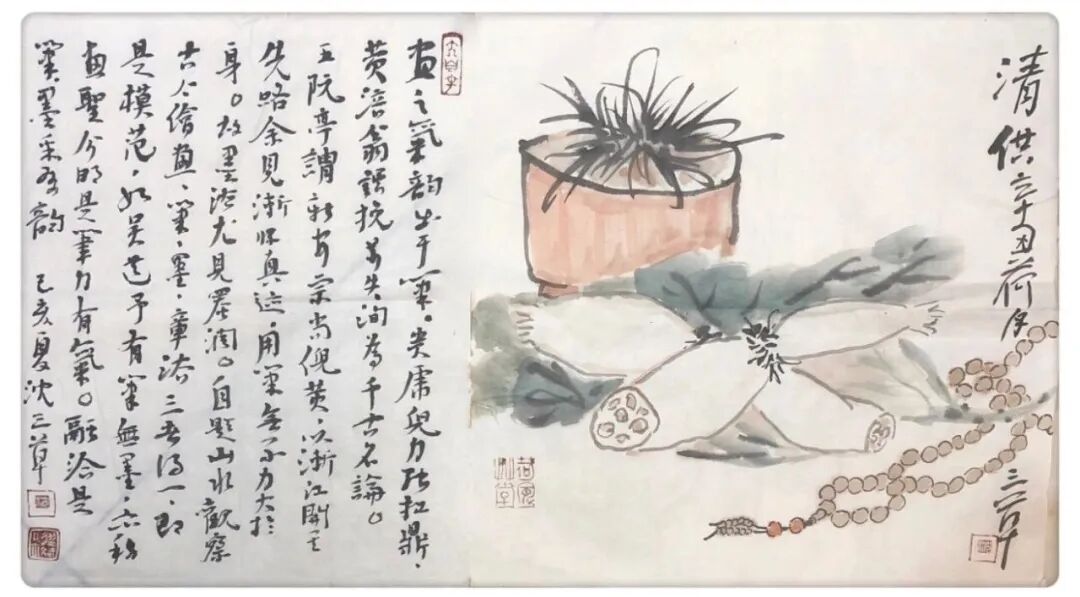 清供 辛丑荷月 三草
畫之氣韵出于筆。米虎兒力能扛鼎，
黄涪翁挽萬失洵為千古名論。
王阮亭謂新安宗尚倪黄，以漸江開其
先路余見漸師真迹，用筆無不力大於
身。故墨法尤見華潤。自題山水觀察
古人繪畫、筆、墨、章法三者得一，即
是模范，如吴道子有筆無墨，亦称
畫聖分明是筆力有氣。融洽是
筆墨乃有韵 己亥夏沈三草